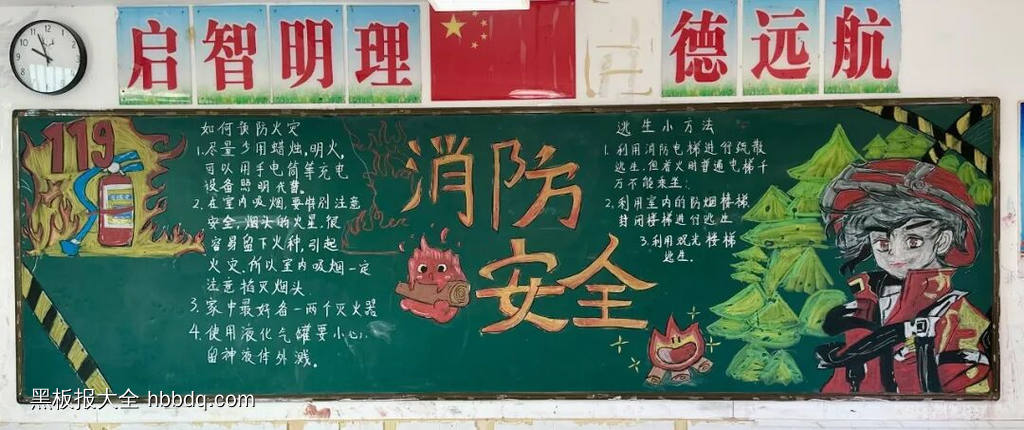 启智明理
德远航
119
如何预防火灾
1.尽量少用蜡烛,明火,
可以用手电筒等充电
设备照明代替。
2.在室内吸烟,要特别注意
安全,烟头的火星,很
容易留下火种,引起
火灾.所以室内吸烟一定
注意掐灭烟头.
3.家中最好备一两个灭火器
4.使用液化气罐要小心,
留神液体外溅。
消防
安全
逃生小方法
1.利用消防电梯进行疏散
逃生,但着火时普通电梯千
万不能乘坐.
2.利用室内的防烟楼梯
封闭楼梯进行逃生
3.利用观光楼梯
逃生.
黑板报大全 hbbdq.com